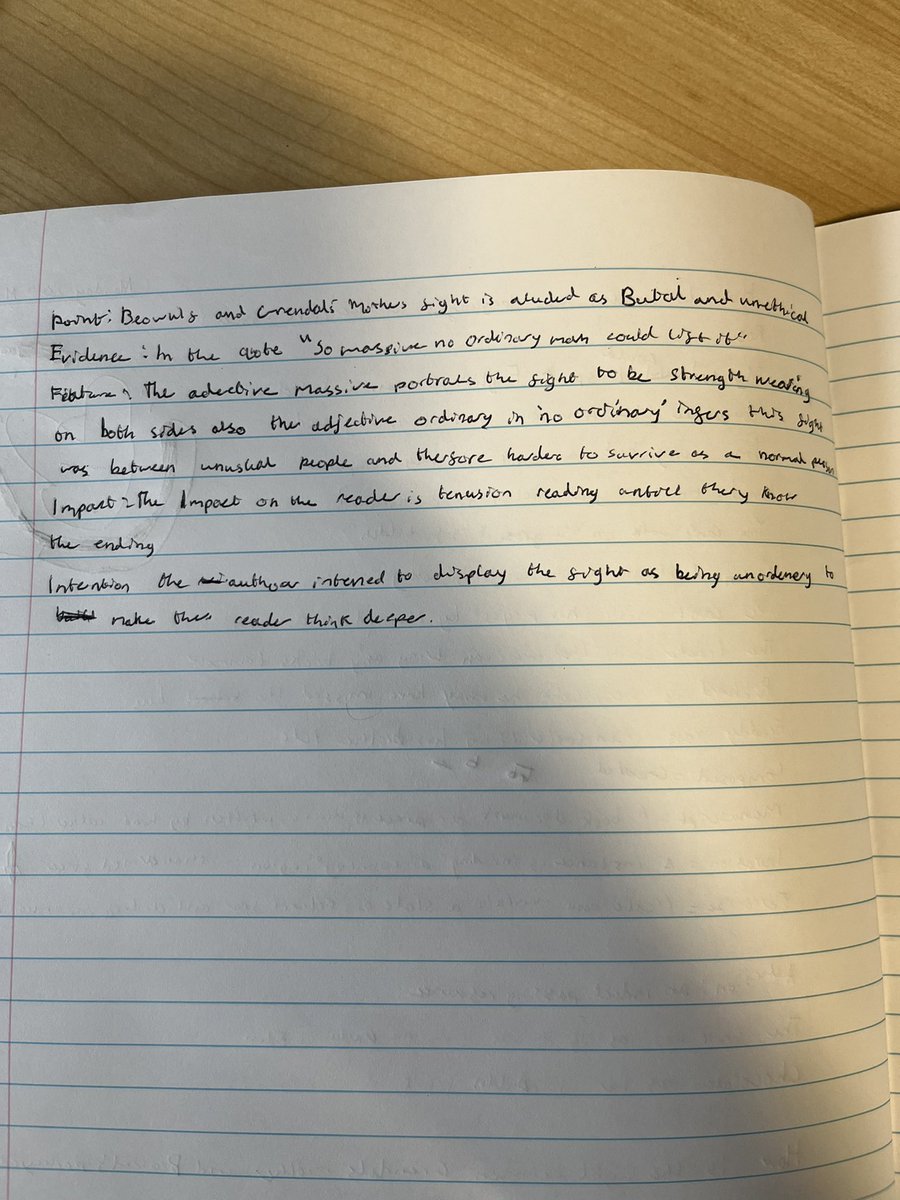 Point: Beowulf and Grendal's Mothers fight is aluded as Butal and unethical
Evidence: In the qoote "So massive no ordinary man could lift it"
Feature: The adective massive portrals the fight to be strength weading
on both sides also the adjective ordinary in 'no ordinary' infers this fight
was between unusual people and therfore harder to survive as a normal person
Impact: The Impact on the reader is tenusion reading antoil they know
the ending
Intention the author intened to display the fight as being unordenery to
make the reader think deeper.